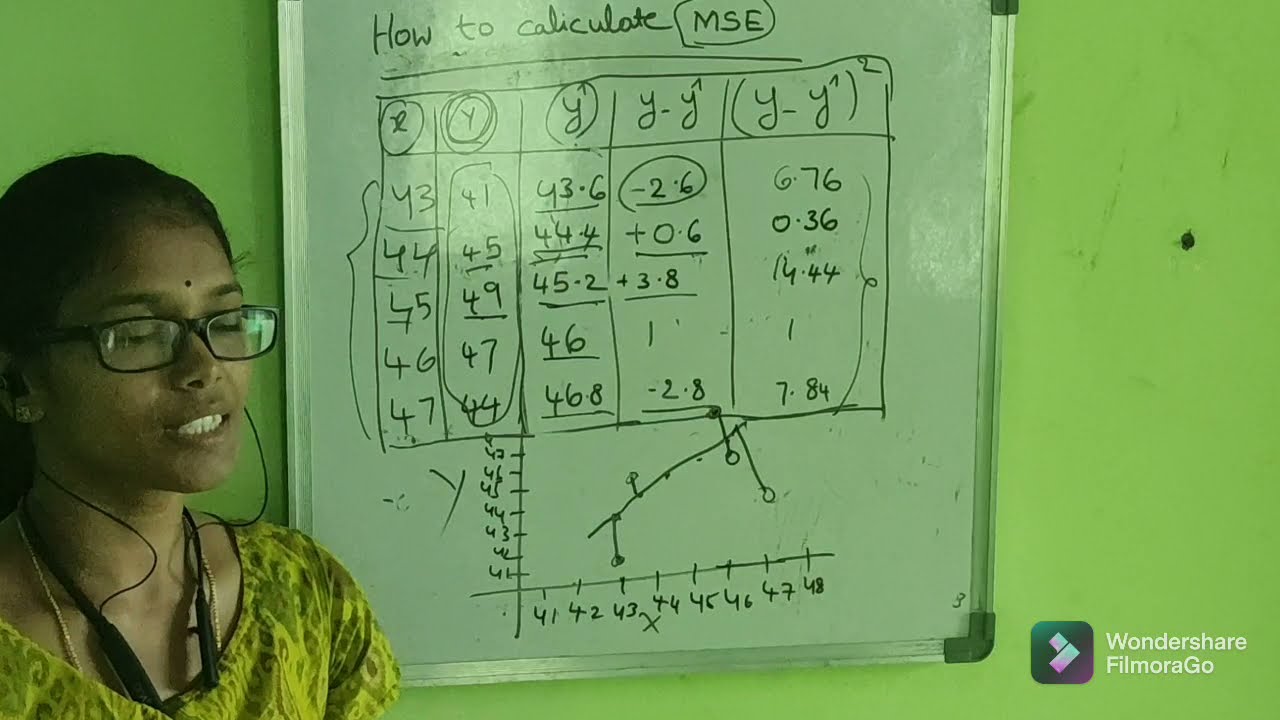 How to caliculate MSE
x y ŷ y - ŷ (y - ŷ)²
43 41 43.6 -2.6 6.76
44 45 44.4 +0.6 0.36
45 49 45.2 +3.8 14.44
46 47 46 1 1
47 44 46.8 -2.8 7.84
47
46
45
44
43
42
41
Y
41 42 43 44 45 46 47 48
X
Wondershare
FilmoraGo